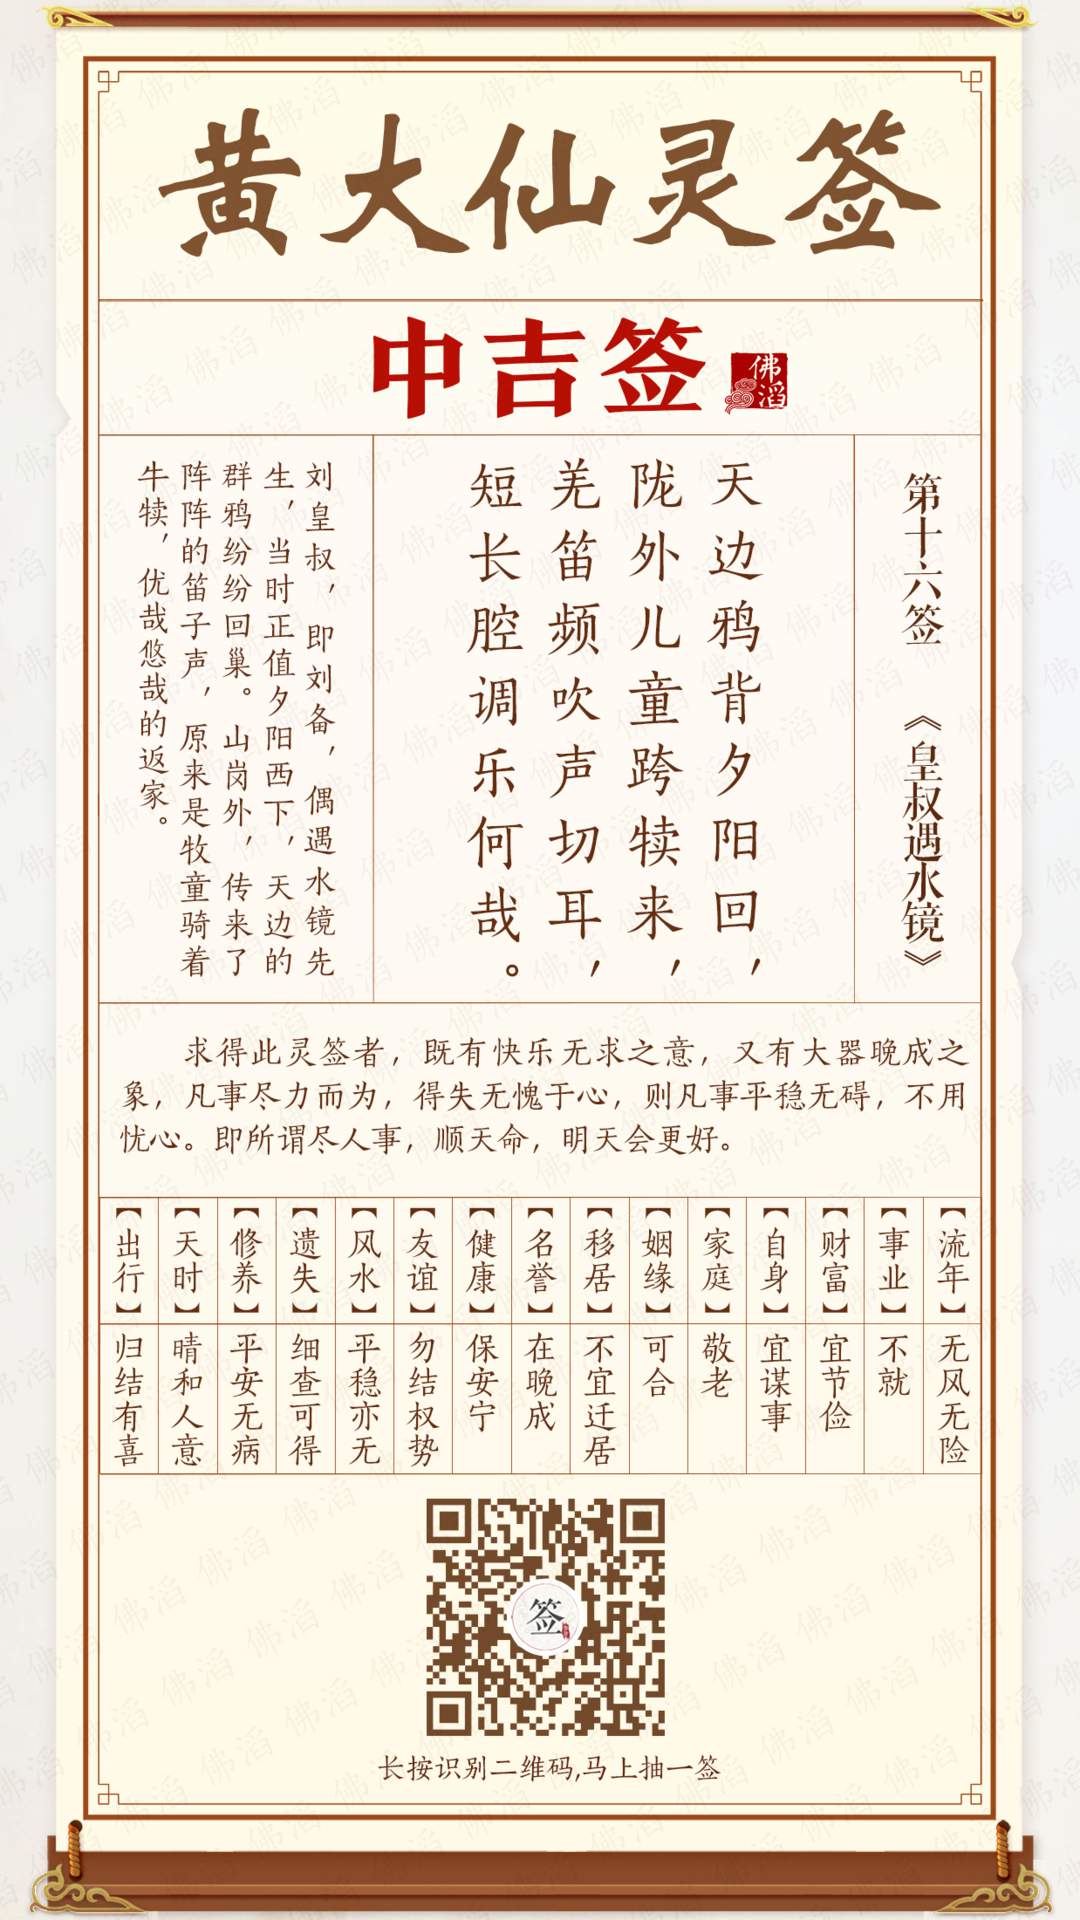 黄大仙灵签
中吉签
佛滔
第十六签 《皇叔遇水镜》
天边鸦背夕阳回，
陇外儿童跨犊来，
羌笛频吹声切耳，
短长腔调乐何哉。
刘皇叔，即刘备，偶遇水镜先
生，当时正值夕阳西下，天边的
群鸦纷纷回巢。山岗外，传来了
阵阵的笛子声，原来是牧童骑着
牛犊，优哉悠哉的返家。
求得此灵签者，既有快乐无求之意，又有大器晚成之
象，凡事尽力而为，得失无愧于心，则凡事平稳无碍，不用
忧心。即所谓尽人事，顺天命，明天会更好。
【流年】无风无险
【事业】不就
【财富】宜节俭
【自身】宜谋事
【家庭】敬老
【姻缘】可合
【移居】不宜迁居
【名誉】在晚成
【健康】保安宁
【友谊】勿结权势
【风水】平稳亦无
【遗失】细查可得
【修养】平安无病
【天时】晴和人意
【出行】归结有喜
签
长按识别二维码,马上抽一签